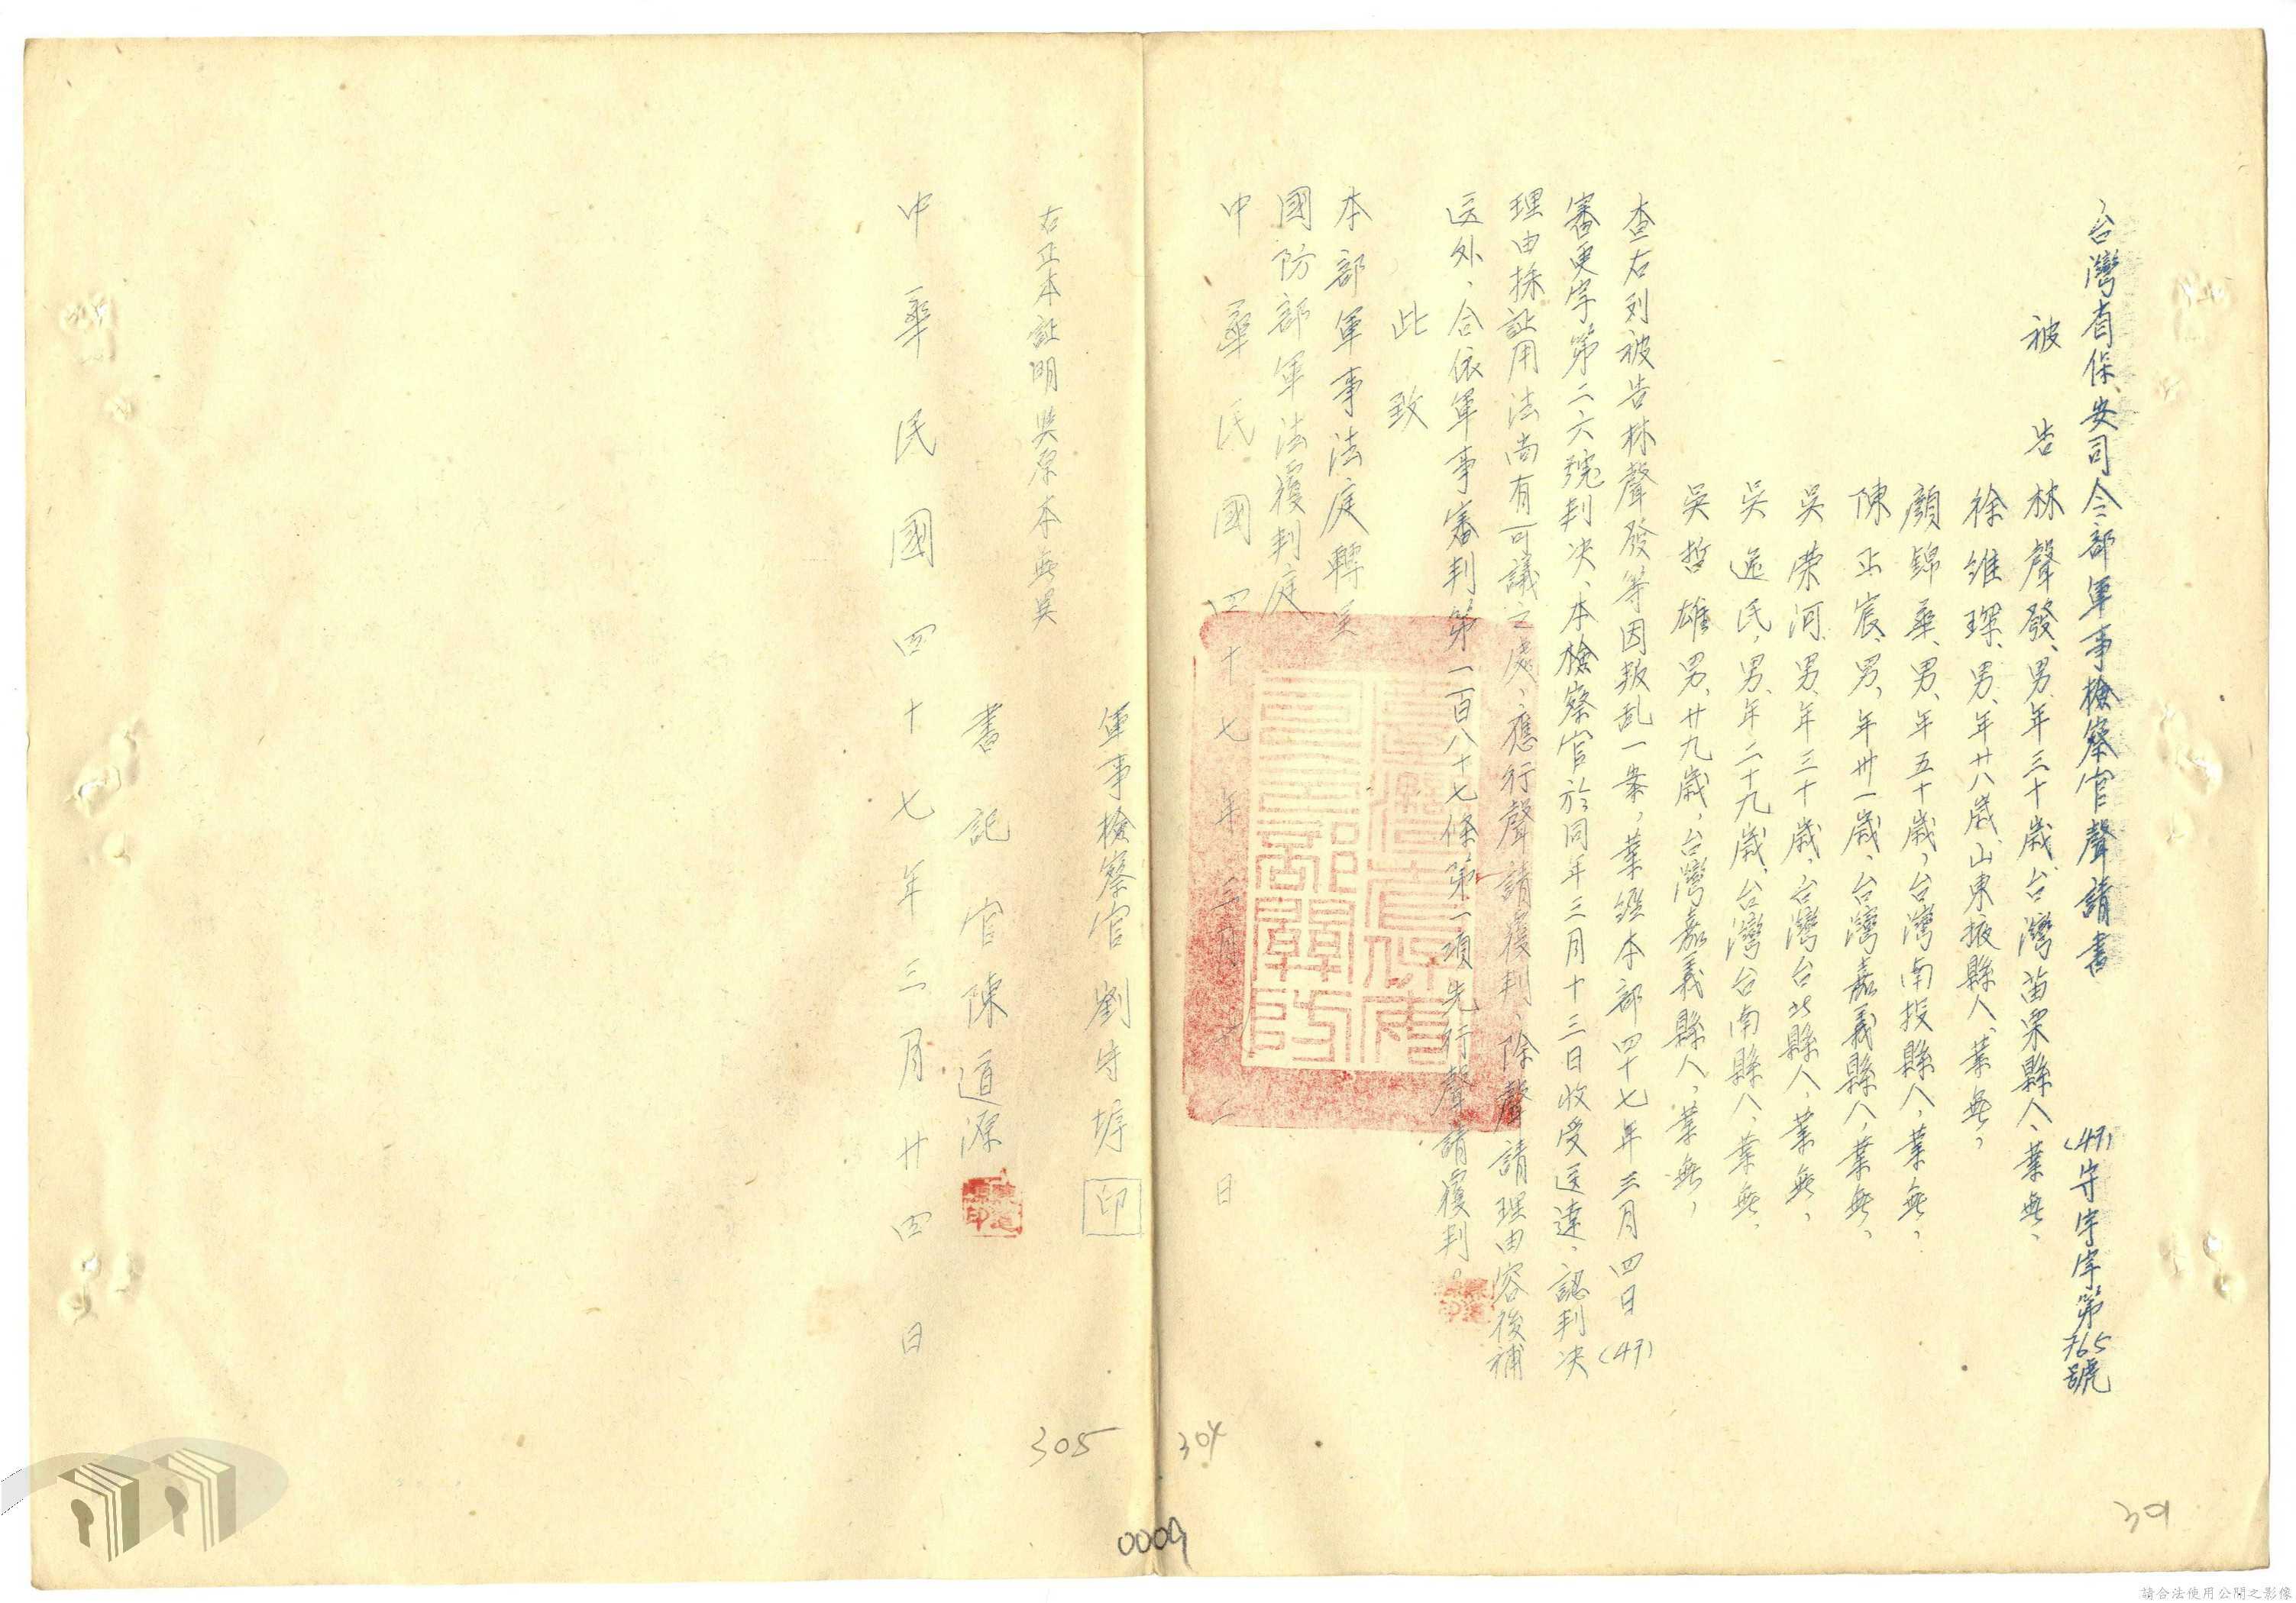 台灣省保安司令部軍事檢察官聲請書 (47)守宇字第765號
被告 林聲發、男、年三十歲、台灣苗栗縣人、業無、
徐維琛、男、年廿八歲、山東掖縣人、業無、
顏錦華、男、年五十歲、台灣南投縣人、業無、
陳正宸、男、年卅一歲、台灣嘉義縣人、業無、
吳榮河、男、年三十歲、台灣台北縣人、業無、
吳逸民、男、年二十九歲、台灣台南縣人、業無、
吳哲雄、男、廿九歲、台灣嘉義縣人、業無、
查右列被告林聲發等因叛乱一案，業經本部四十七年三月四日(47)
審更字第二六號判决、本檢察官於同年三月十三日收受送達，認判决
理由採証用法尚有可議之處，應行聲請覆判，除聲請理由容後補
送外，合依軍事審判第一百八十七條第一項先行聲請覆判。
此致
本部軍事法庭轉呈
國防部軍法覆判庭
中華民國四十七年三月二日
軍事檢察官劉守 印
右正本証明與原本無異
書記官陳道源
中華民國四十七年三月廿四日
305
304
301
0009
請合法使用公開之影像